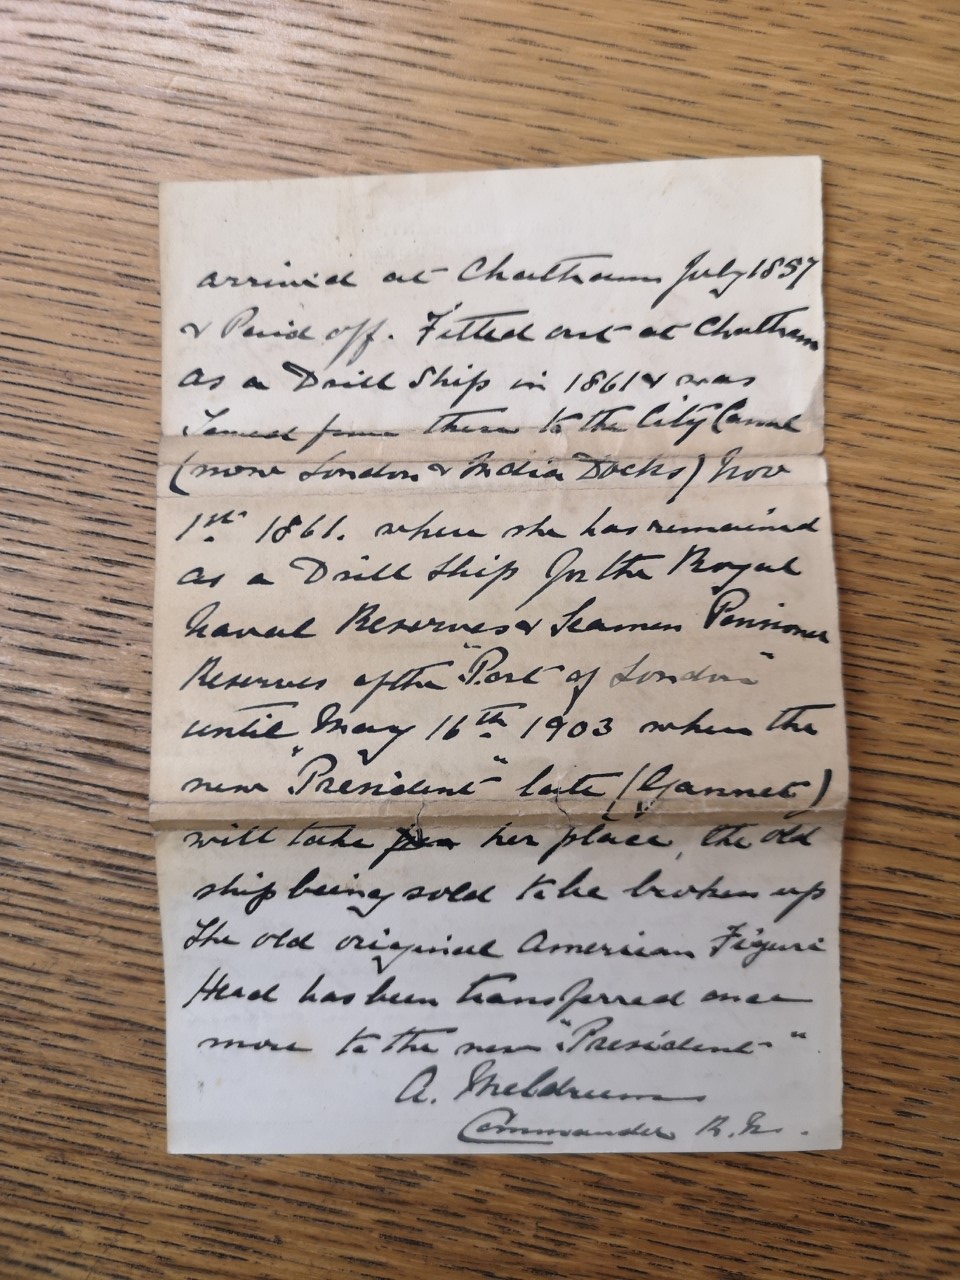 arrived at Chatham July 1857
& Paid off. Fitted out at Chatham
as a Drill Ship in 1861 & was
Towed from there to the City Canal
(now London & India Docks) Nov
1st 1861. where she has remained
as a Drill Ship for the Royal
Naval Reserves & Seamen Pensioner
Reserves of the "Port of London"
until May 16th 1903 when the
new "President" late (Gannet)
will take her place, the old
ship being sold to be broken up
The old original American Figure
Head has been transferred once
more to the new "President"
A. Meldrum
Commander R.N.